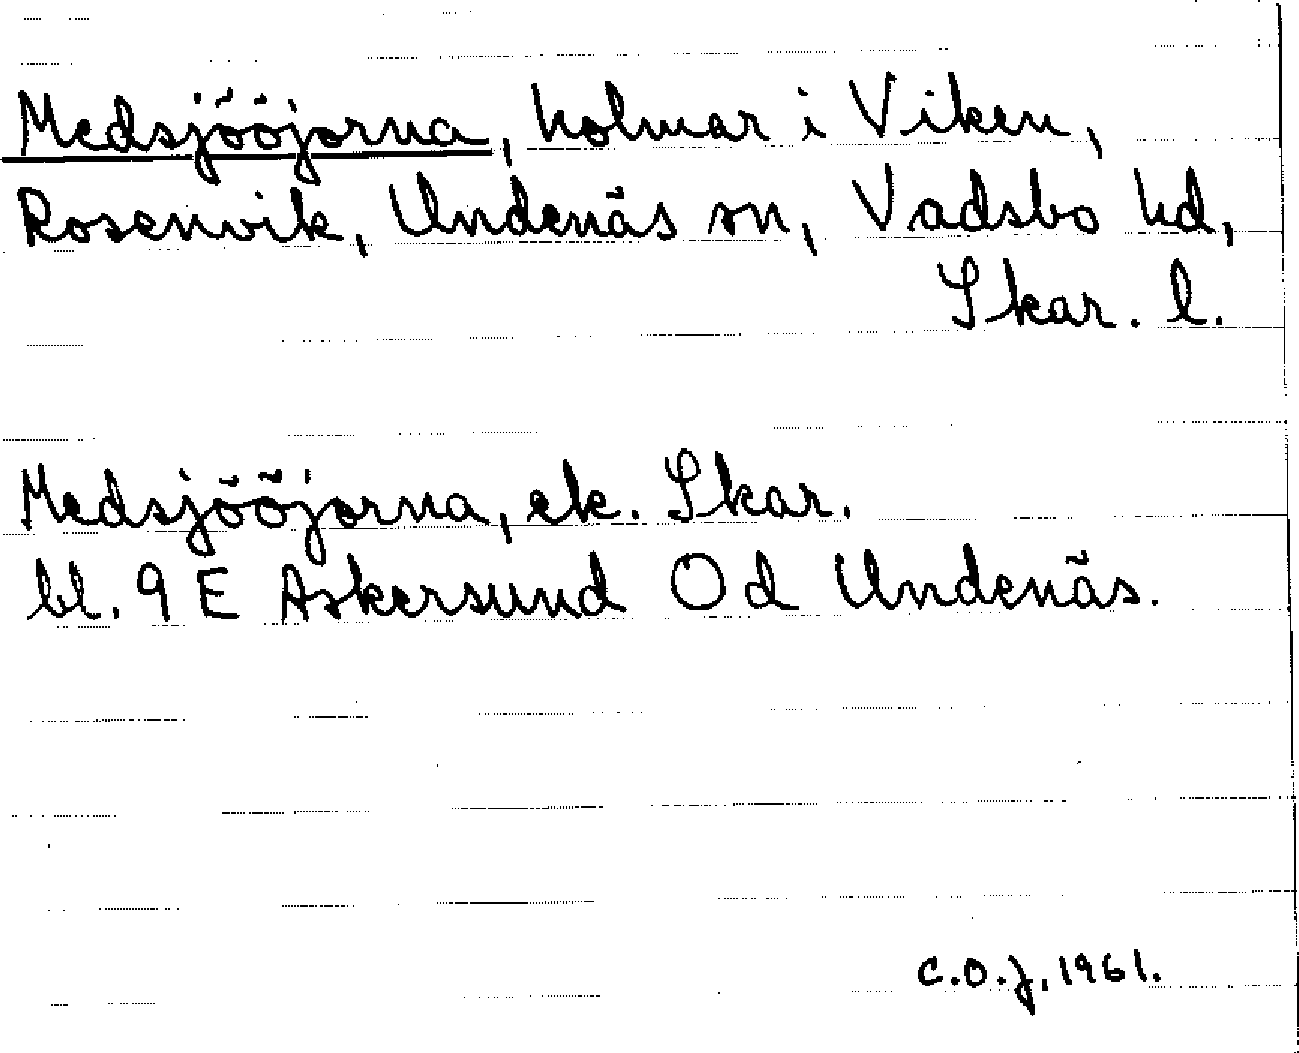 Medsjööjorna, holmar i Viken,
Rosenvik, Undenäs sn, Vadsbo hd,
Skar. l.
Medsjööjorna, ek. Skar.
bl. 9 E Askersund Od Undenäs.
C.O.J. 1961.